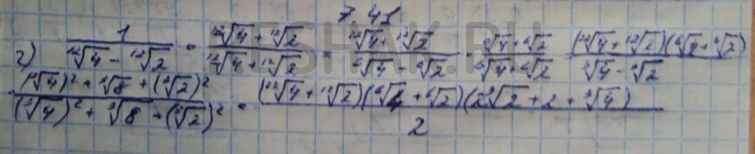 7 41
г) 1/(¹²√4 - ¹²√2) · (¹²√4 + ¹²√2)/(¹²√4 + ¹²√2) = (¹²√4 + ¹²√2)/(⁶√4 - ⁶√2) · (⁶√4 + ⁶√2)/(⁶√4 + ⁶√2) = (¹²√4 + ¹²√2)(⁶√4 + ⁶√2)/(³√4 - ³√2)
· ((³√4)² + ³√8 + (³√2)²)/((³√4)² + ³√8 + (³√2)²) = (¹²√4 + ¹²√2)(⁶√4 + ⁶√2)(2³√2 + 2 + ³√4)/2